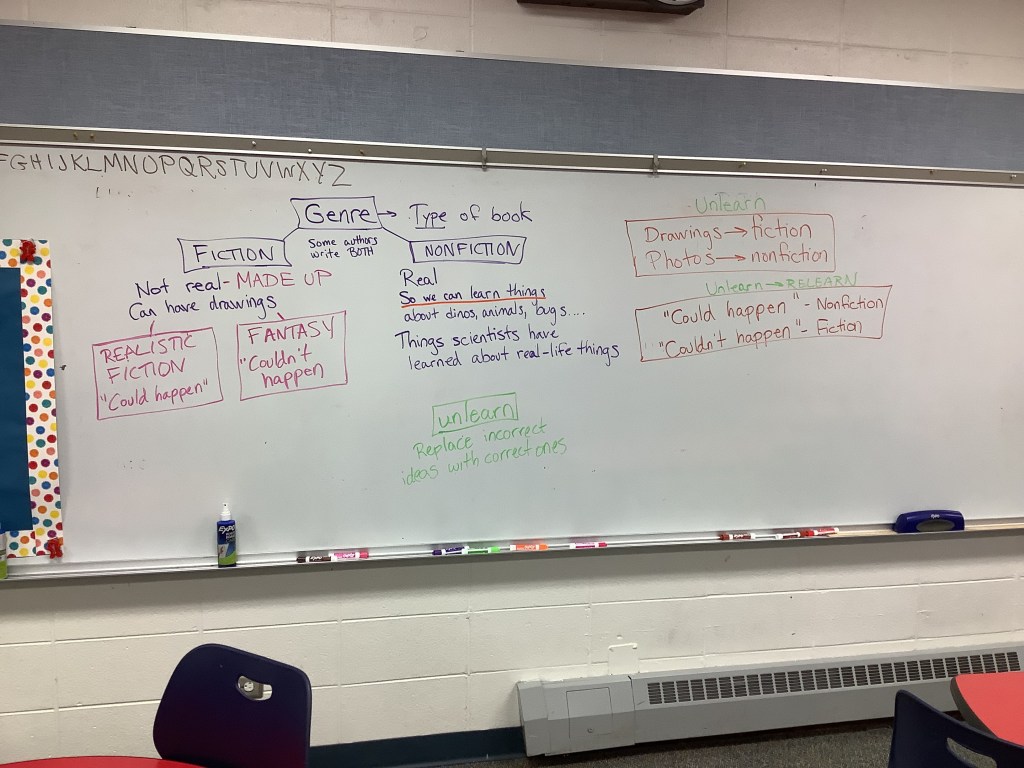 FGHIJKLMNOPQRSTUVWXYZ
Genre → Type of book
FICTION
Some authors
write BOTH
NONFICTION
Not real-MADE UP
Can have drawings
REALISTIC
FICTION
"Could happen"
FANTASY
"Couldn't
happen
Real
So we can learn things
about dinos, animals, bugs....
Things scientists have
learned about real-life things
unlearn
Replace incorrect
ideas with correct ones
UnLearn
Drawings → fiction
Photos → nonfiction
Unlearn → RELEARN
"Could happen" - Nonfiction
"Couldn't happen" - Fiction
EXPO